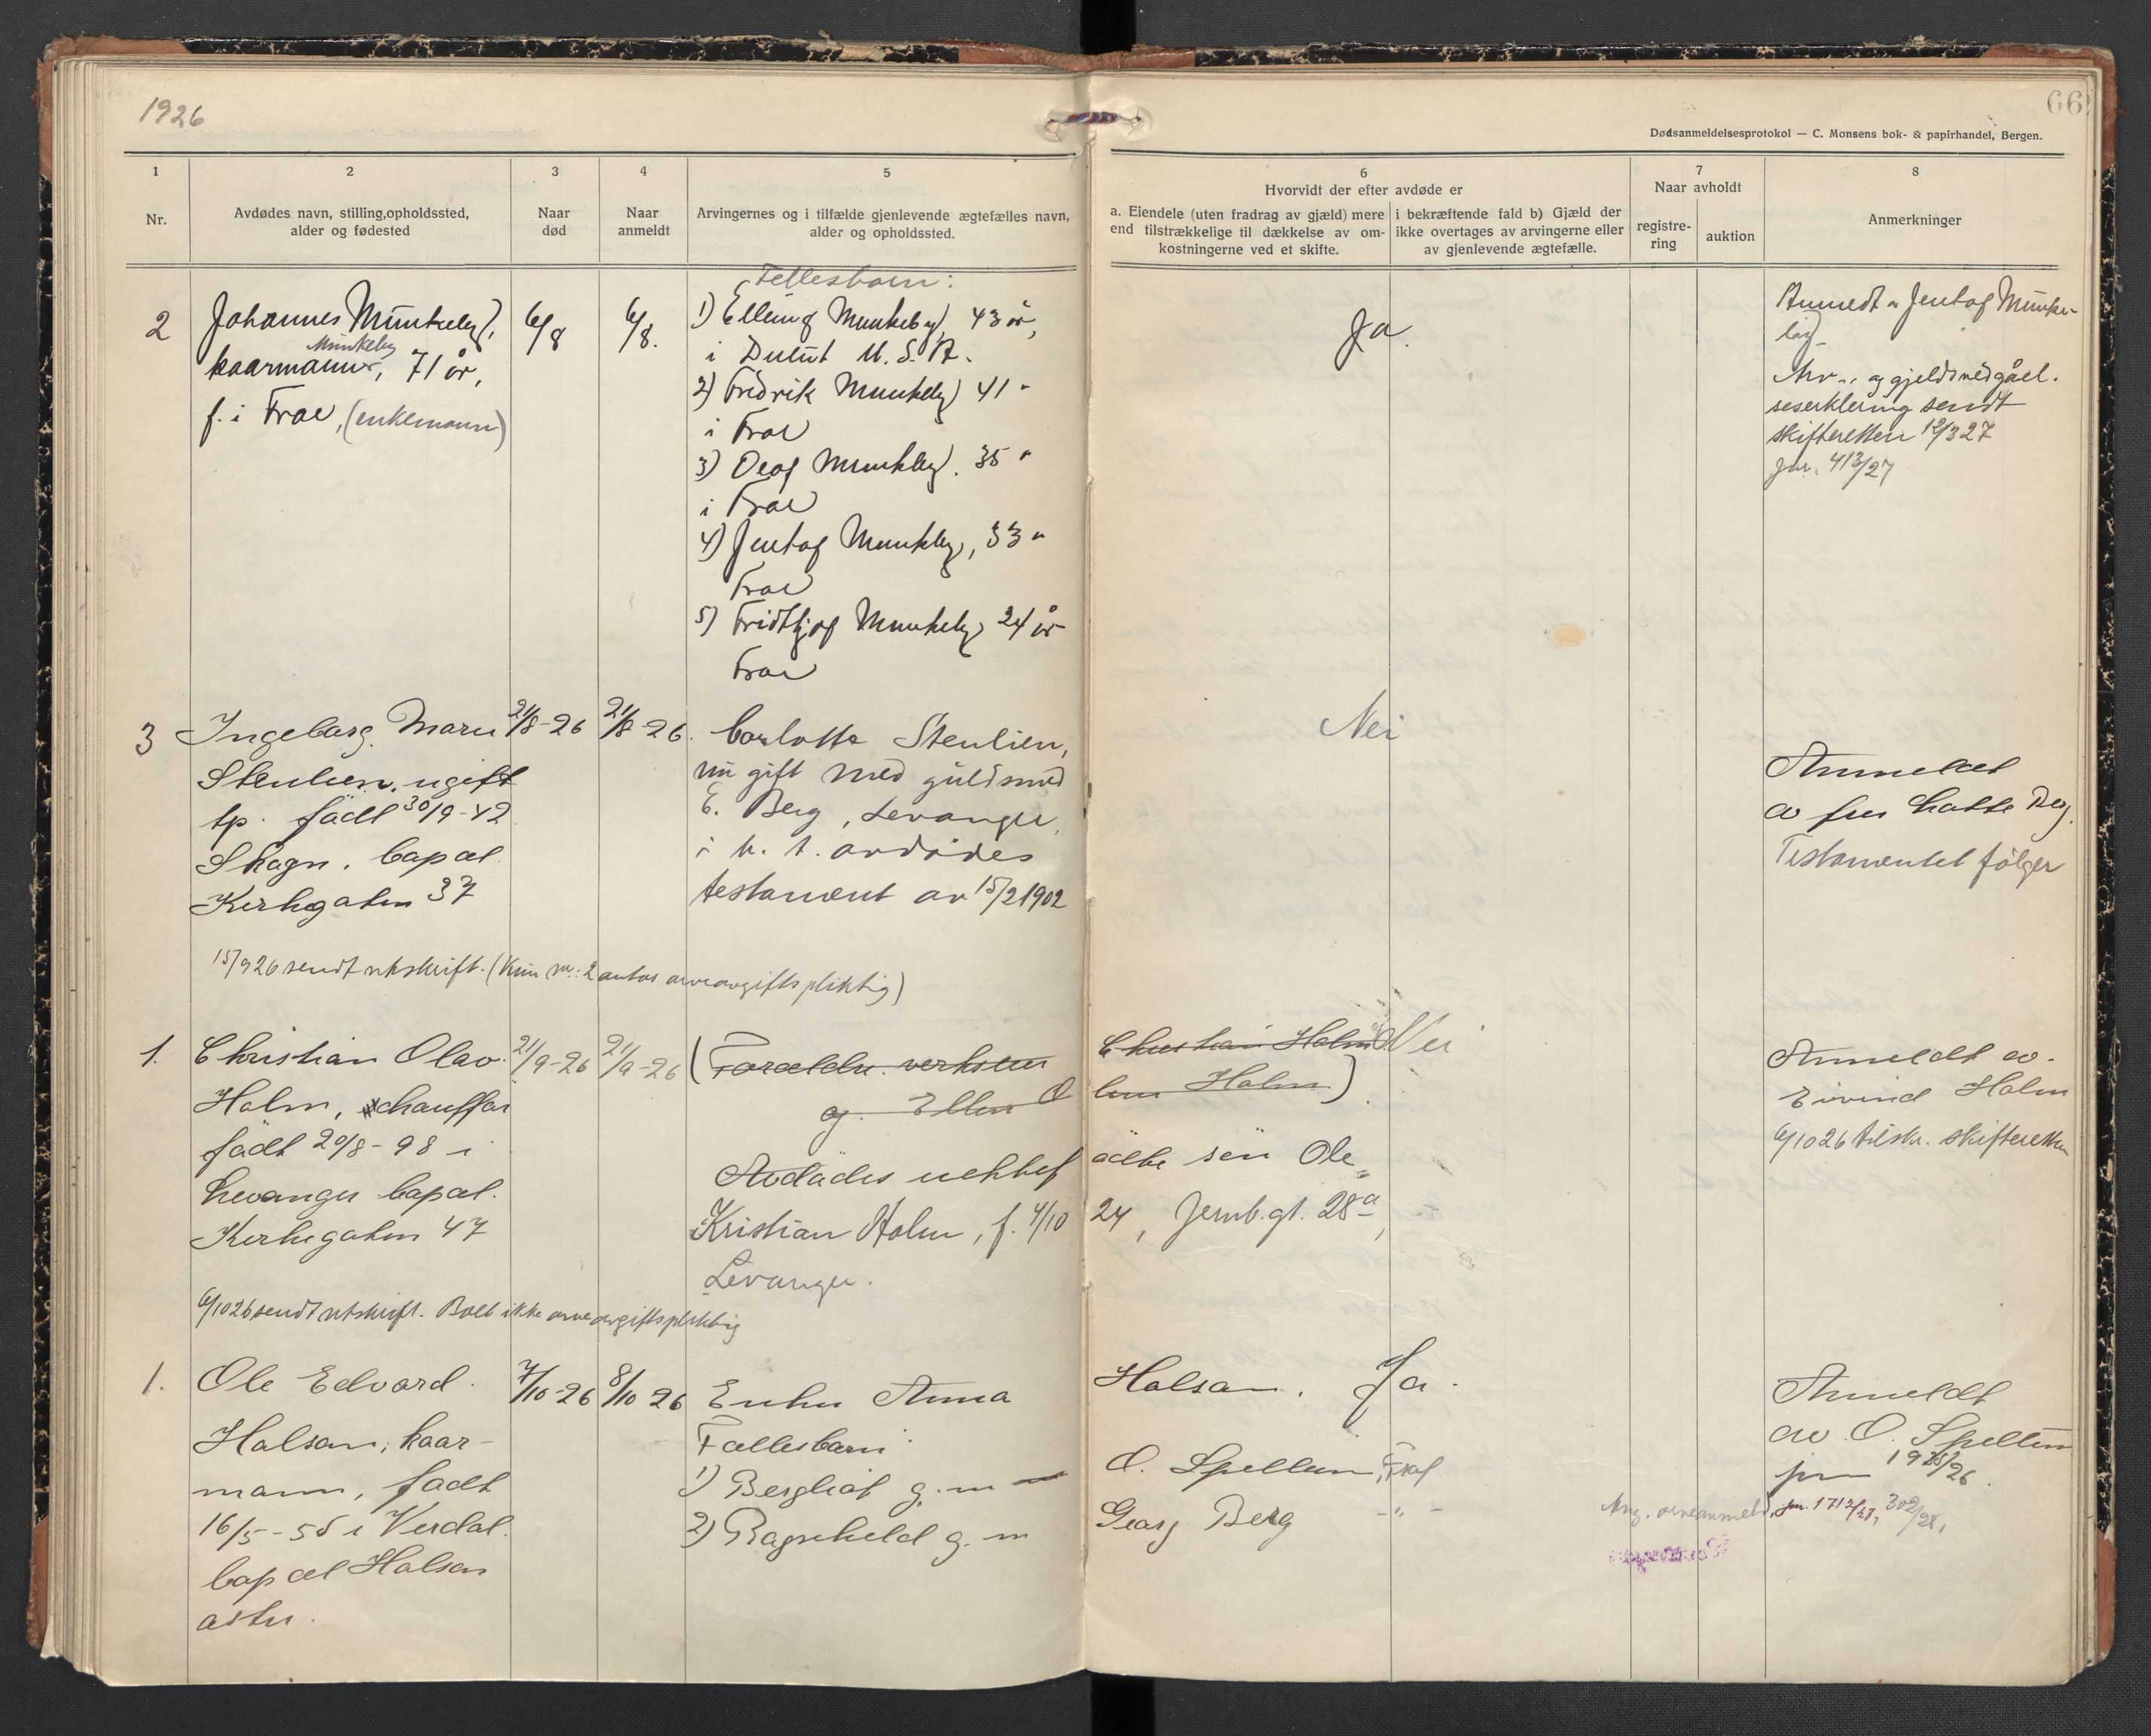 1926
66
Dødsanmeldelsesprotokol — C. Monsens bok- & papirhandel, Bergen.
1
Nr.
2
Avdødes navn, stilling,opholdssted,
alder og fødested
3
Naar
død
4
Naar
anmeldt
5
Arvingernes og i tilfælde gjenlevende ægtefælles navn,
alder og opholdssted.
6
Hvorvidt der efter avdøde er
a. Eiendele (uten fradrag av gjæld) mere
end tilstrækkelige til dækkelse av om-
kostningerne ved et skifte.
i bekræftende fald b) Gjæld der
ikke overtages av arvingerne eller
av gjenlevende ægtefælle.
7
Naar avholdt
registre-
ring
auktion
8
Anmerkninger
2
Johannes Munkeby,
Munkeby
kaarmann, 71 år,
f. i Frol, (enkemann)
6/8
6/8.
Fellesbarn:
1) Elling Munkeby, 43 år,
i Dulut U.S.A.
2) Fridrik Munkeby 41 "
i Frol
3) Olaf Munkeby. 35 "
i Frol
4) Jentof Munkeby, 33 "
Frol
5) Fridthjof Munkeby 24 år
Frol
Ja.
Anmeldt a Jentof Munke-
by
Arv- og gjeldsvedgåel-
seserklering sendt
skifteretten 12/3 27
jnr. 413/27
3
Ingeborg Marie
Stenlien, ugift
født 30/9-42
Skogn. bopæl
Kirkegaten 37
21/8-26
21/8-26.
Carlotta Stenlien,
nu gift med guldsmed
E. Berg, Levanger,
i h. t. avdødes
testament av 15/2 1902
Nei
Anmeldt
av fru Lotte Berg.
Testamentet følger
15/9 26 sendt utskrift. (Kun nr: 2 antas arveavgiftspliktig)
1.
Christian Olav
Holm, chauffør
født 20/8-98 i
Levanger bopæl.
Kirkegaten 47
21/9-26
21/9-26
(Forældre. verkseier Christian Holm
og Ellen O len Holm)
Avdødes uekhtefødte søn Ole
Kristian Holm, f. 4/10 24, Jernb.gt. 28a,
Levanger.
Nei
Anmeldt av
Eivind Holm
6/10 26 tilskr. skifteretten
6/10 26 sendt utskrift. Boet ikke arveavgiftspliktig
1.
Ole Edvard
Halsan, kaar-
mann, født
16/5-55 i Verdal.
bopæl Halsan
østre.
7/10-26
8/10 26
Enke Anna Halsan.
Fællesbarn:
1) Bergliot g. m O. Spellum, Frol
2) Ragnhild g. m Georg Berg -"-
Ja.
Anmeldt
av O. Spellum
jnr
Ang. arveanmeld. jnr. 1712/27, 302/28,